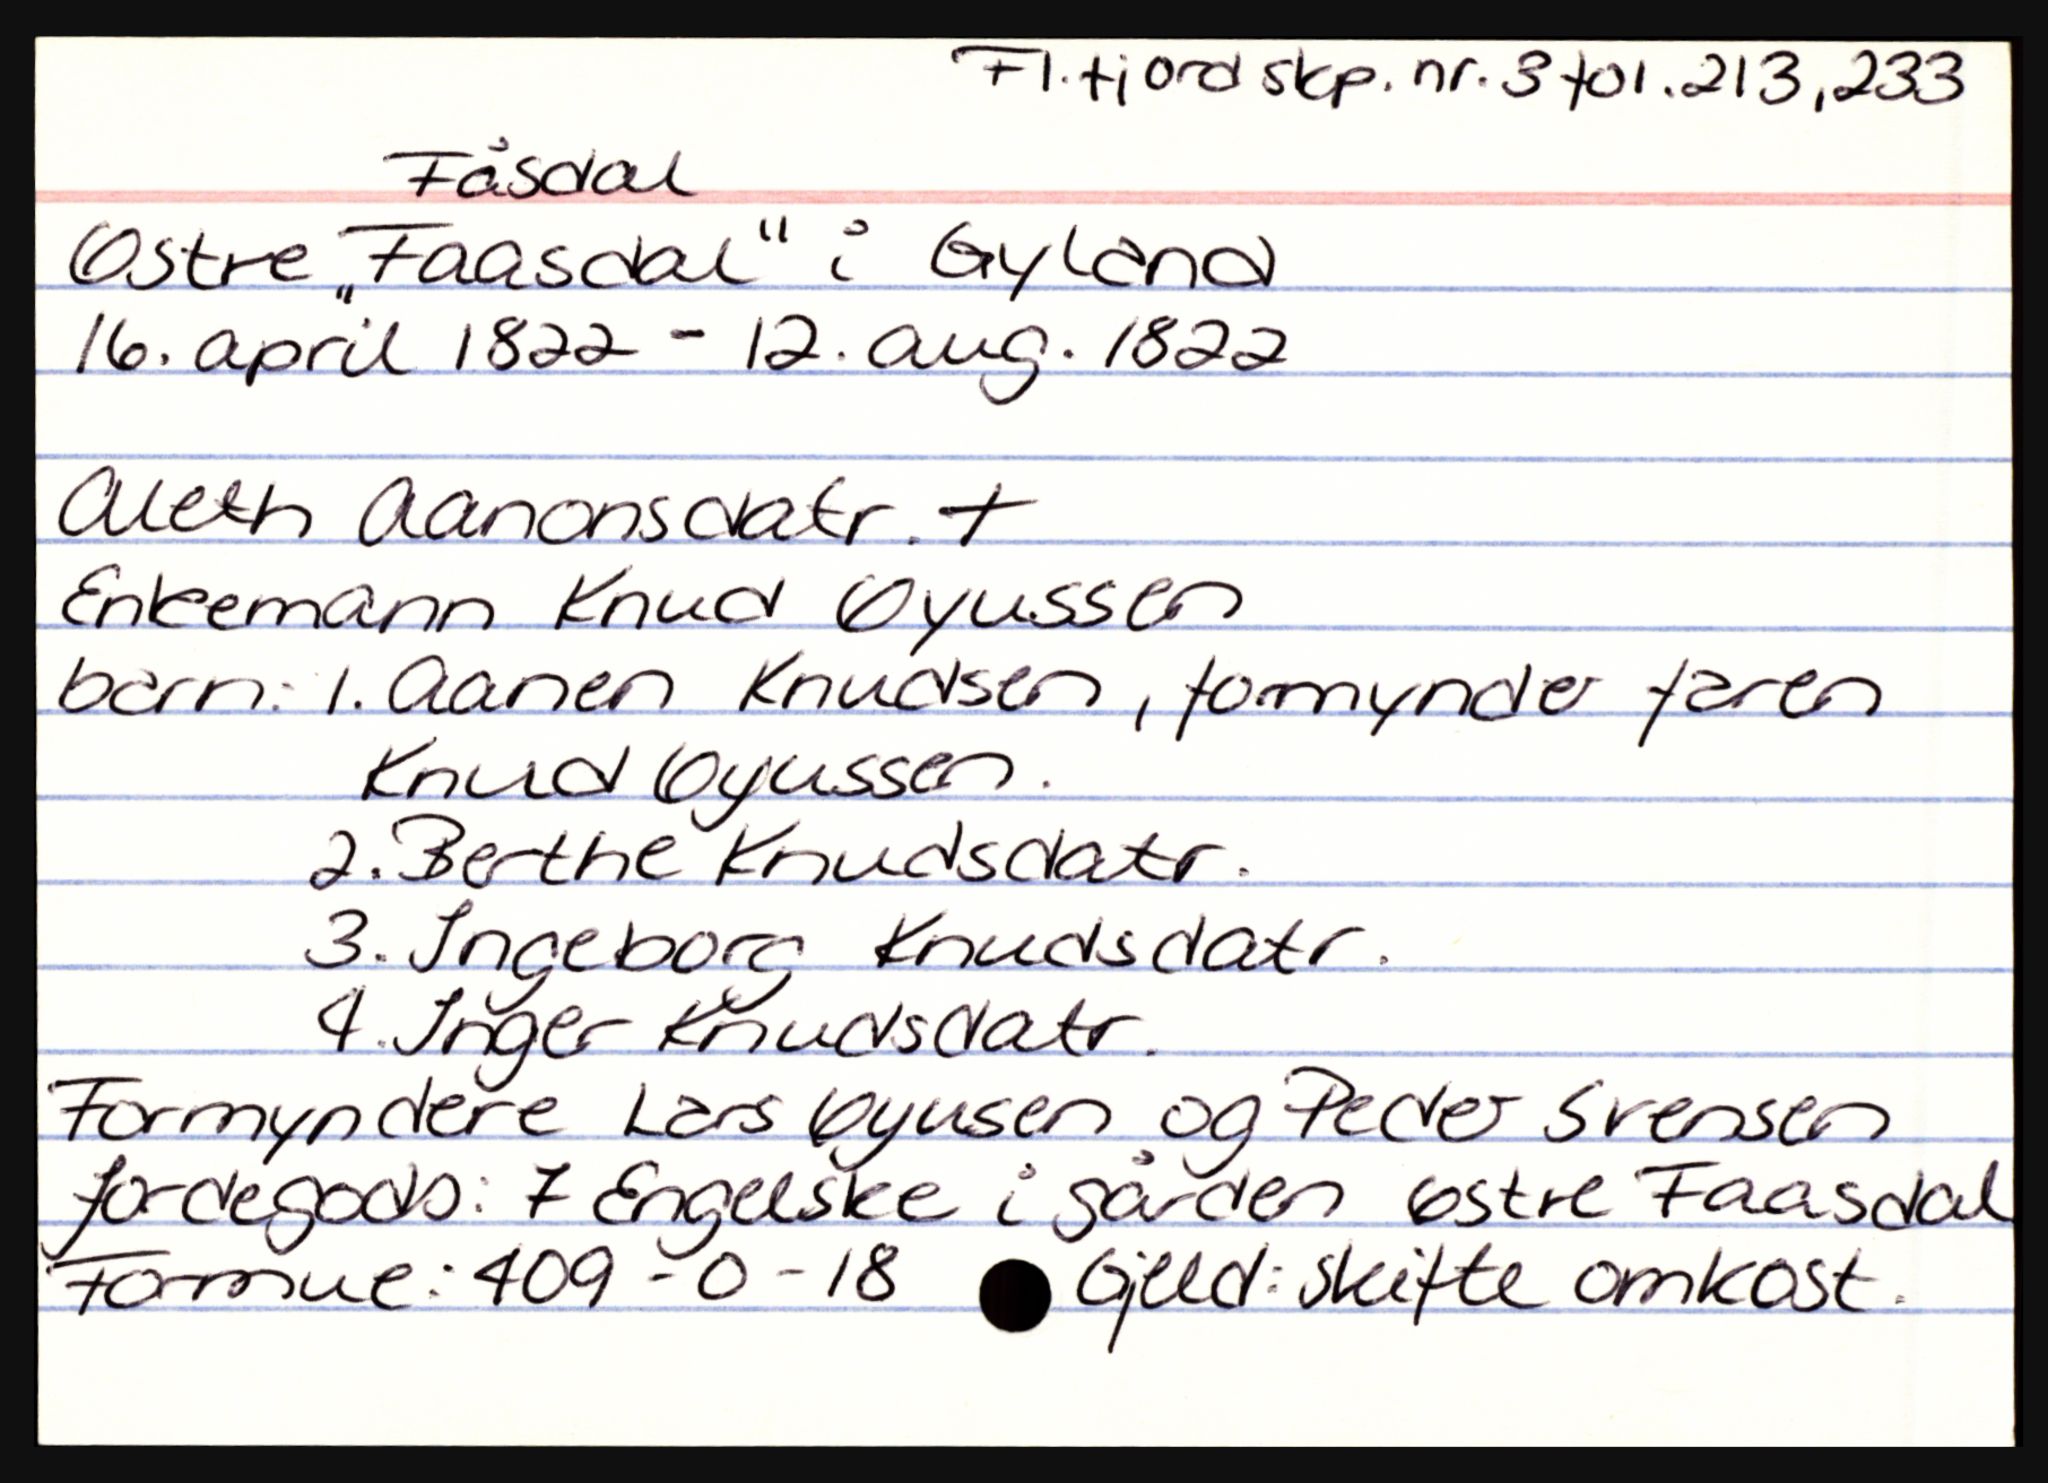 Fl.fjord skp. nr. 3 fol. 213, 233
Fåsdal
Østre „Faasdal“ i Gyland
16. april 1822 - 12. aug. 1822
Aleth Aanonsdatr. +
Enkemann Knud Øyussen
barn: 1. Aanen Knudsen, formynder faren
Knud Øyussen.
2. Berthe Knudsdatr.
3. Ingeborg Knudsdatr.
4. Inger Knudsdatr.
Formyndere Lars Øyusen og Peder Svensen
jordegods: 7 Engelske i gården Østre Faasdal
Formue: 409 - 0 - 18 Gjeld: skifte omkost.